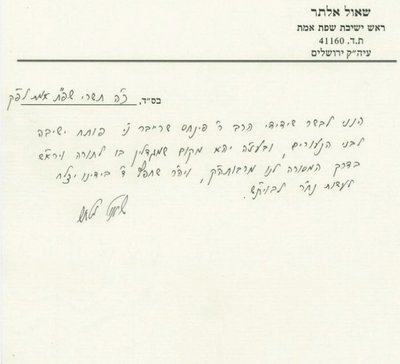 שאול אלתר
ראש ישיבת שפת אמת
ת.ד. 41160
עיה"ק ירושלים
בס"ד, כ"ה תשרי שפ"ת אמת לפ"ק
הנני לבשר שידידי הרב ר' פינחס שרייבר ני' פותח ישיבה
לבני הנעורים, ובעז"ה יהא מקום שמגדלין בו לתורה ויר"ש
בדרך המסורה לנו מרבוה"ק, ויה"ר שחפץ ד' בידינו יצלח
לעדות נח"ר לבוי"ש.